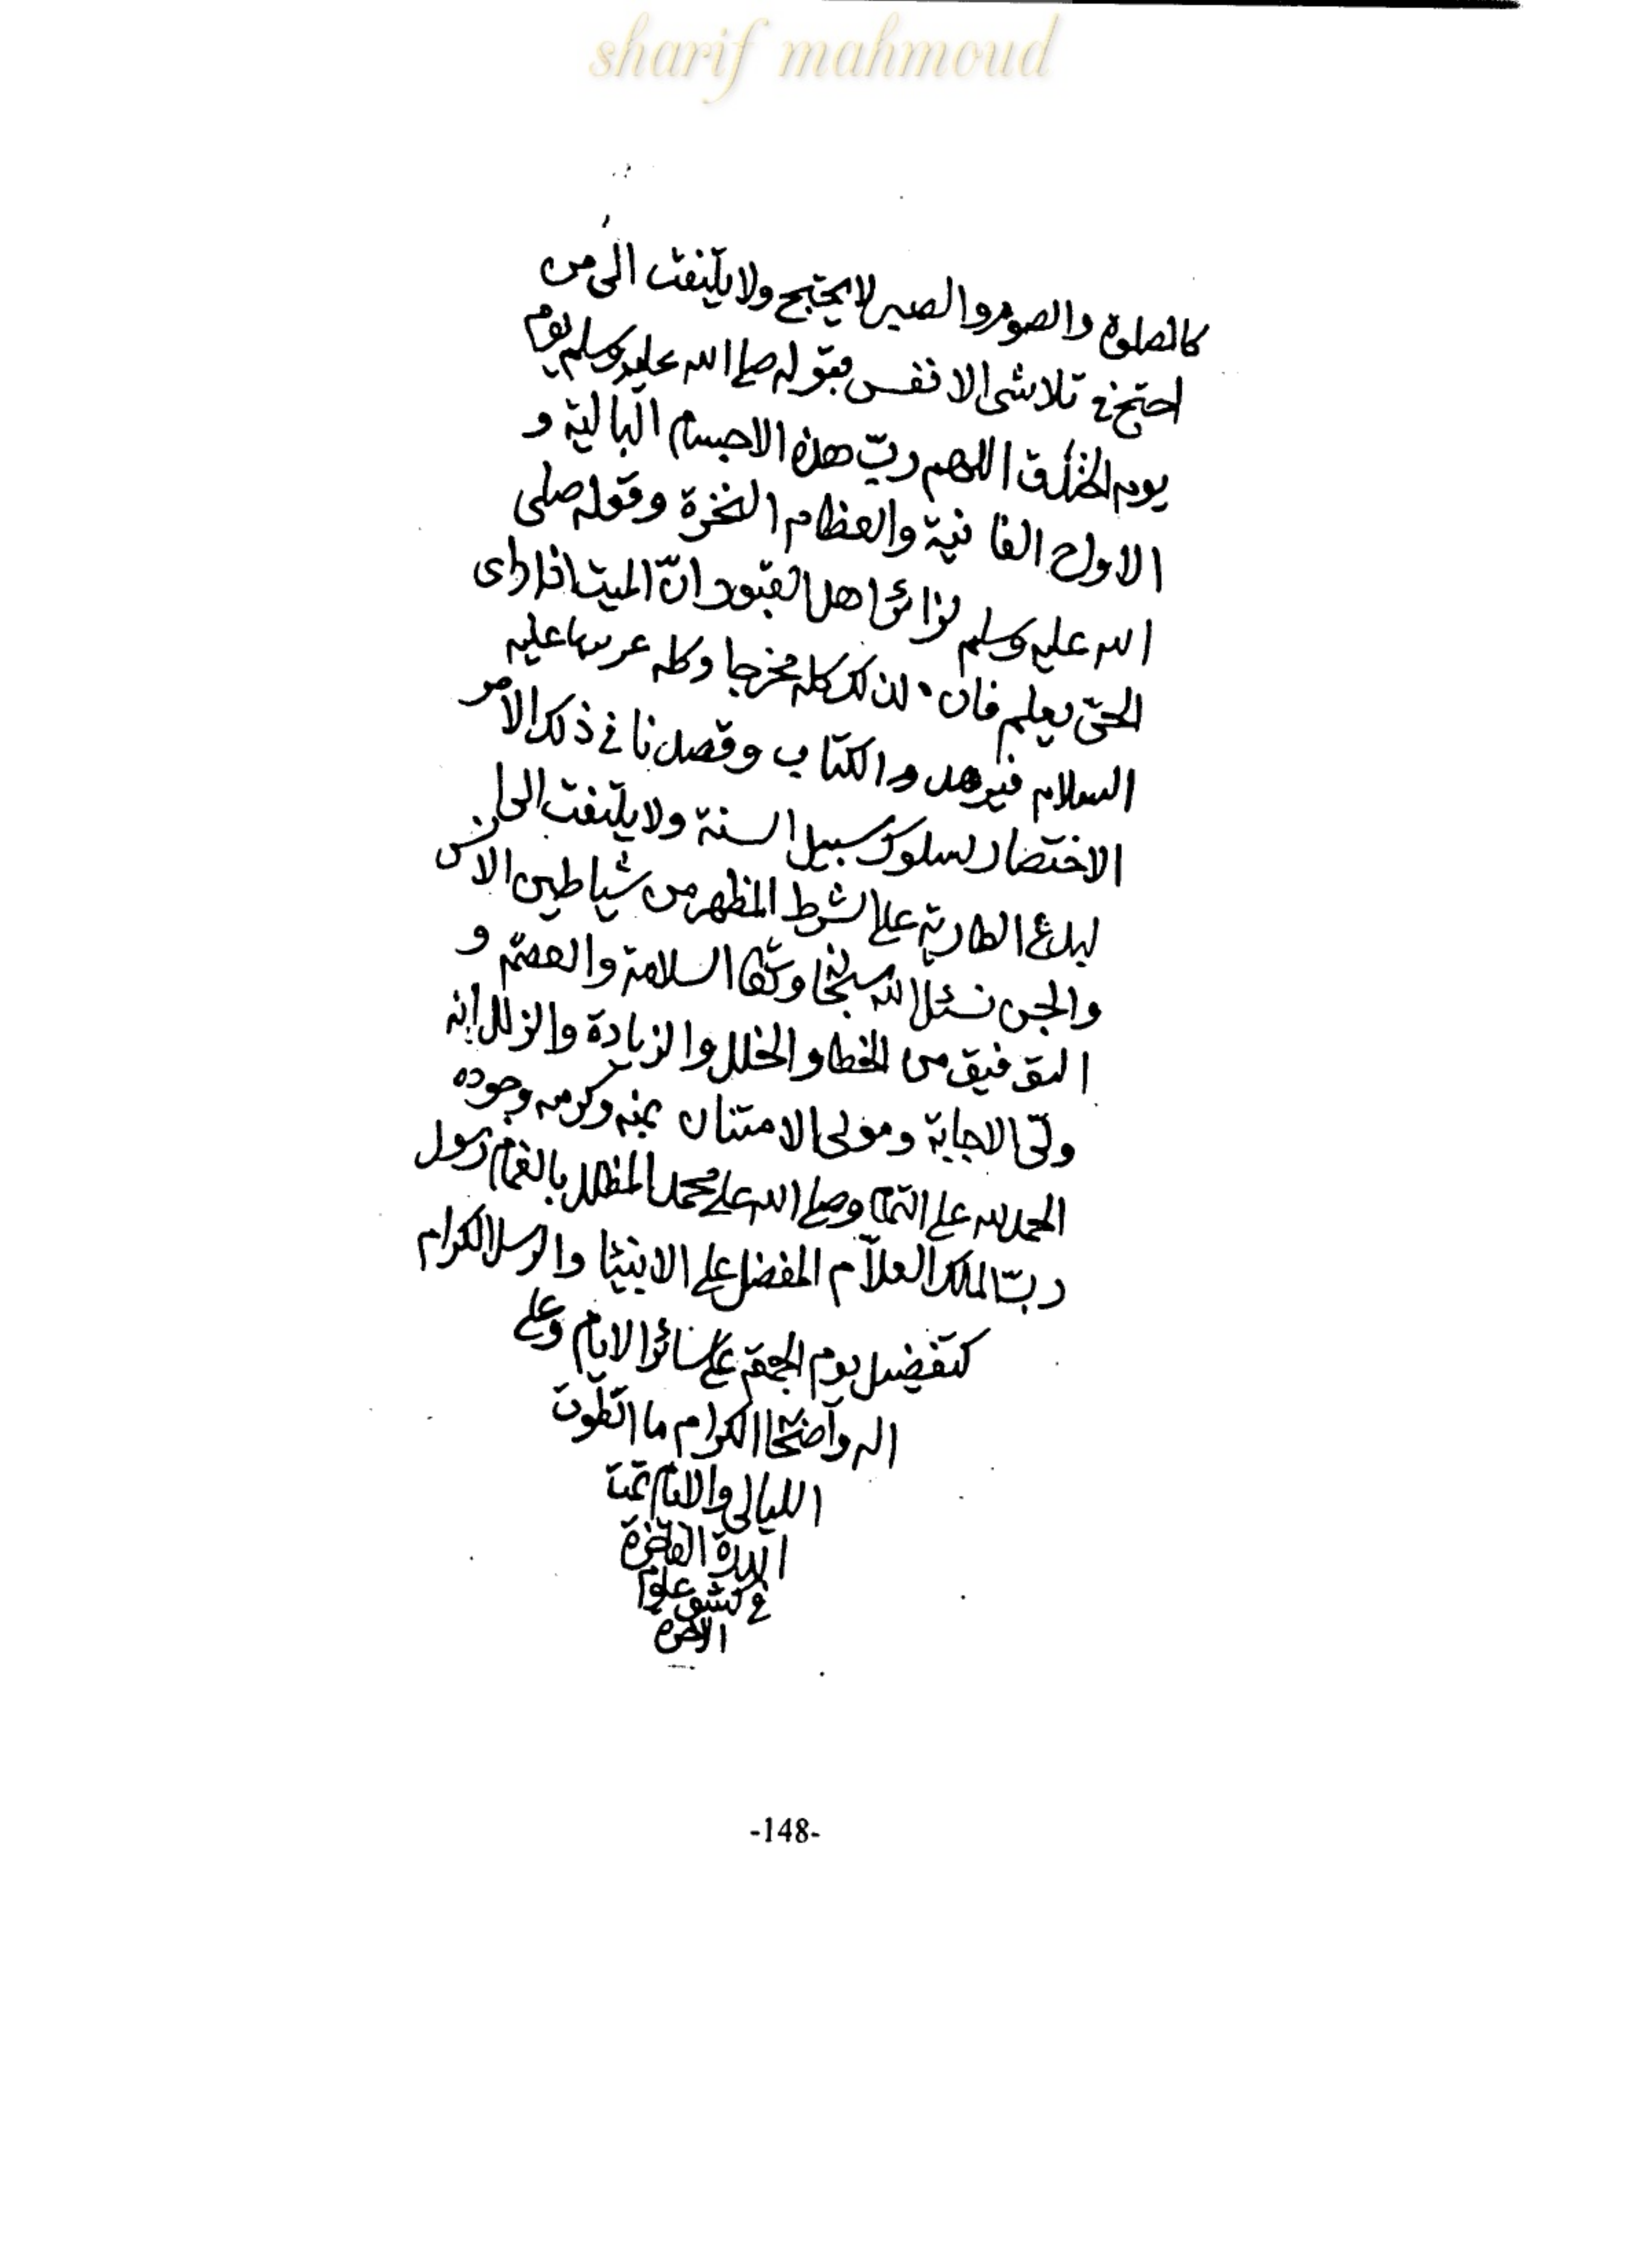 sharif mahmoud
كالصلوة والصوم والصبر لا يحتج ولا يلتفت الى من
احتج في تلاشى الانفس بقوله صلى الله عليه وسلم يوم
يوم اللهم ربّ هذه الاجسام البالية و
الفانية والعظام النخرة وقوله صلى
الله عليه وسلم اهل القبور انّ الميت اذا راى
الحق يعلم فان لذلك كله مخرجا وكله
السلام والكتاب وقصدنا في ذلك الامر
الاختصار لسلوك سبيل السنة ولا يلتفت الى
لبدع الطارية على المظهر من شياطين الانس
والجن نسئل الله سبحانه وتعالى السلامة والعصمة و
التوفيق من الخطا والخلل والزيادة والزلل انه
ولىّ الاجابة ومولى الامتنان بمنه وكرمه وجوده
الحمد لله على التمام وصلى الله على محمد المظلل بالغمام رسول
ربّ الملك العلاّم المفضل على الانبيا والرسل الكرام
كتفضيل يوم الجمعة على سائر الايام وعلى
اله الكرام ما
الليالى والايام تمت
الدرة الفاخرة
في كشف علوم
الاخرة
-148-